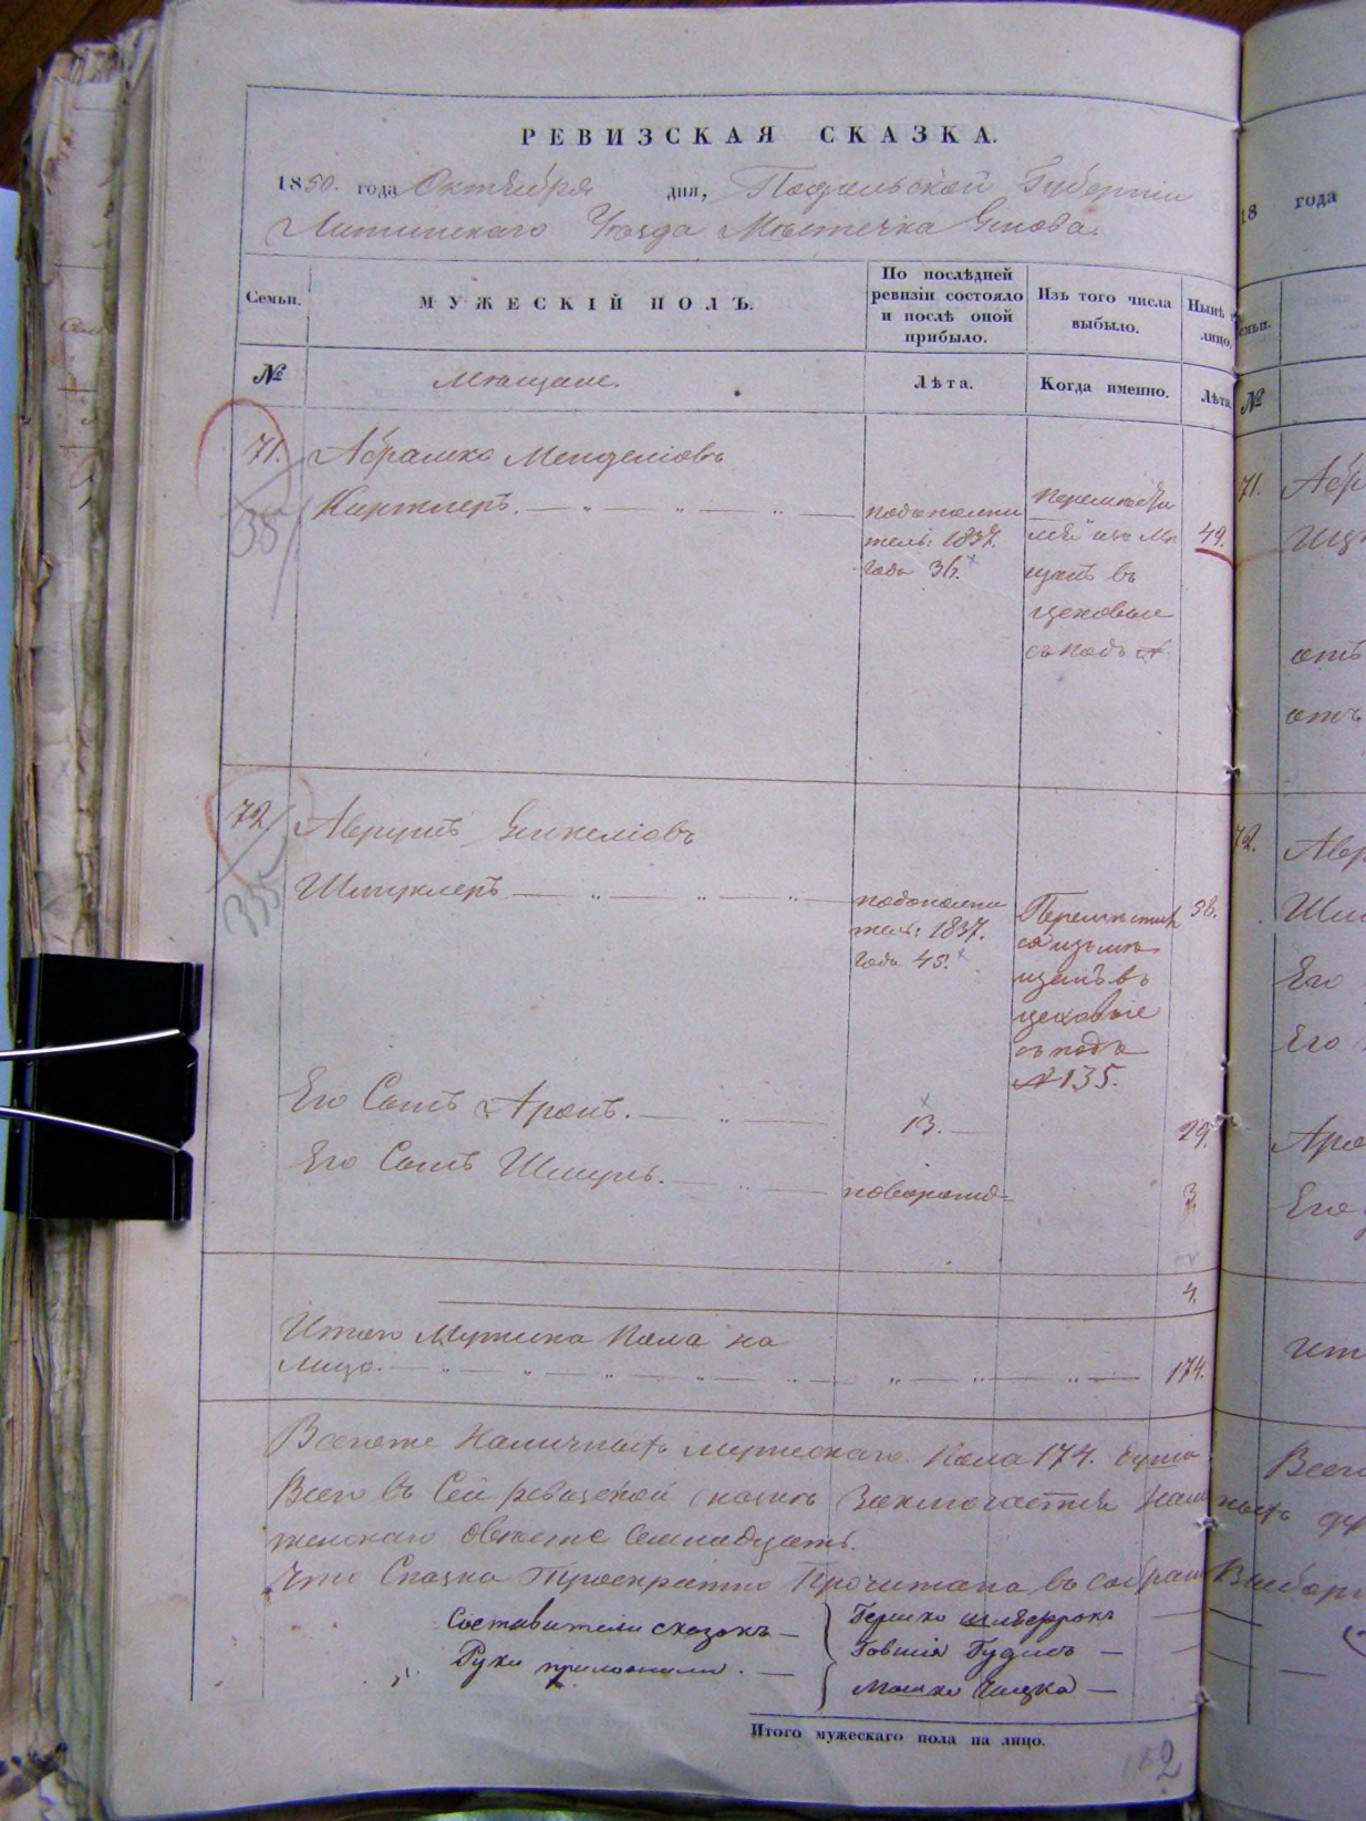 РЕВИЗСКАЯ СКАЗКА.
1850. года Октября дня, Подольской Губерніи
Литинскаго Уѣзда Мѣстечка Янова.
Семьи.
МУЖЕСКІЙ ПОЛЪ.
По послѣдней ревизіи состояло и послѣ оной прибыло.
Изъ того числа выбыло.
Нынѣ
лицо.
№
Мѣщане.
Лѣта.
Когда именно.
Лѣта
71.
Абрамко Менделіовъ
38
Киржнеръ.
подополни
тель: 1837.
года 36.
из Мѣ
щанъ въ
цеховые
съ подъ №
49.
72
Аврумъ Янкеліовъ
335
Шмуклеръ
подополни
тель: 1837.
года 45.
Перемѣстил
ся изъ мѣ
щанъ въ
цеховые
съ подъ
№ 135.
38.
Его Сынъ Аронъ.
13.
29.
Его Сынъ Шмуль.
3.
4.
Итого Мужеска Пола на
лицо.
174.
Всего Наличныхъ мужескаго Пола 174. душъ
Всего въ Сей ревизской сказкѣ Заключается
женскаго двѣсте Семнадцать.
Что Сказка Троекратно Прочитана въ собран
Составители сказокъ
Руки приложили.
Гершко
Мошко
Итого мужескаго пола на лицо.
2
18 года
№
71.
Абр
отъ
отъ
72.
Авр
Шм
Его
Его
Аро
Его
Ит
Всего